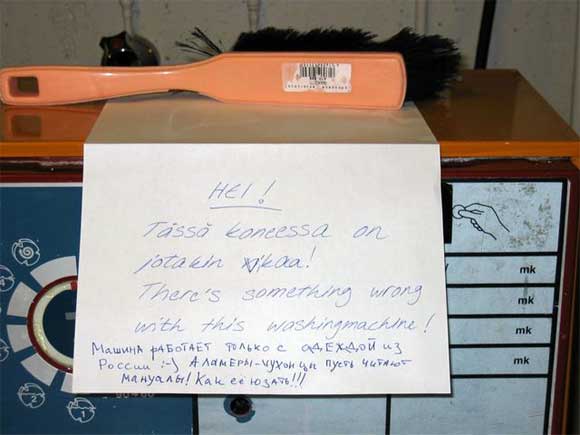 HEI!
Tässä koneessa on
jotakin vikaa!
There's something wrong
with this washingmachine!
Машина работает только с одеждой из
России :-) А ламеры-чухонцы пусть читают
мануалы! Как её юзать!!!
mk
mk
mk
mk
2
1